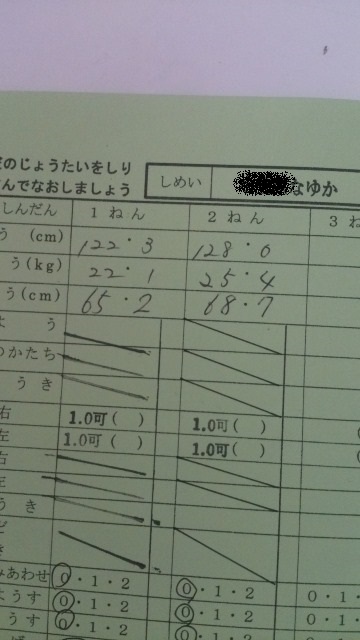 のじょうたいをしり
んでなおしましょう
しめい なゆか
しんだん 1ねん 2ねん 3ね
う (cm) 122・3 128・0
う(kg) 22・1 25・4
う(cm) 65・2 68・7
よう
のかたち
うき
右 1.0可( ) 1.0可( )
左 1.0可( ) 1.0可( )
右
左
うき
ど
き
みあわせ 0・1・2 0・1・2 0・1・
ようす 0・1・2 0・1・2 0・1・
うす 0・1・2 0・1・2 0・1・